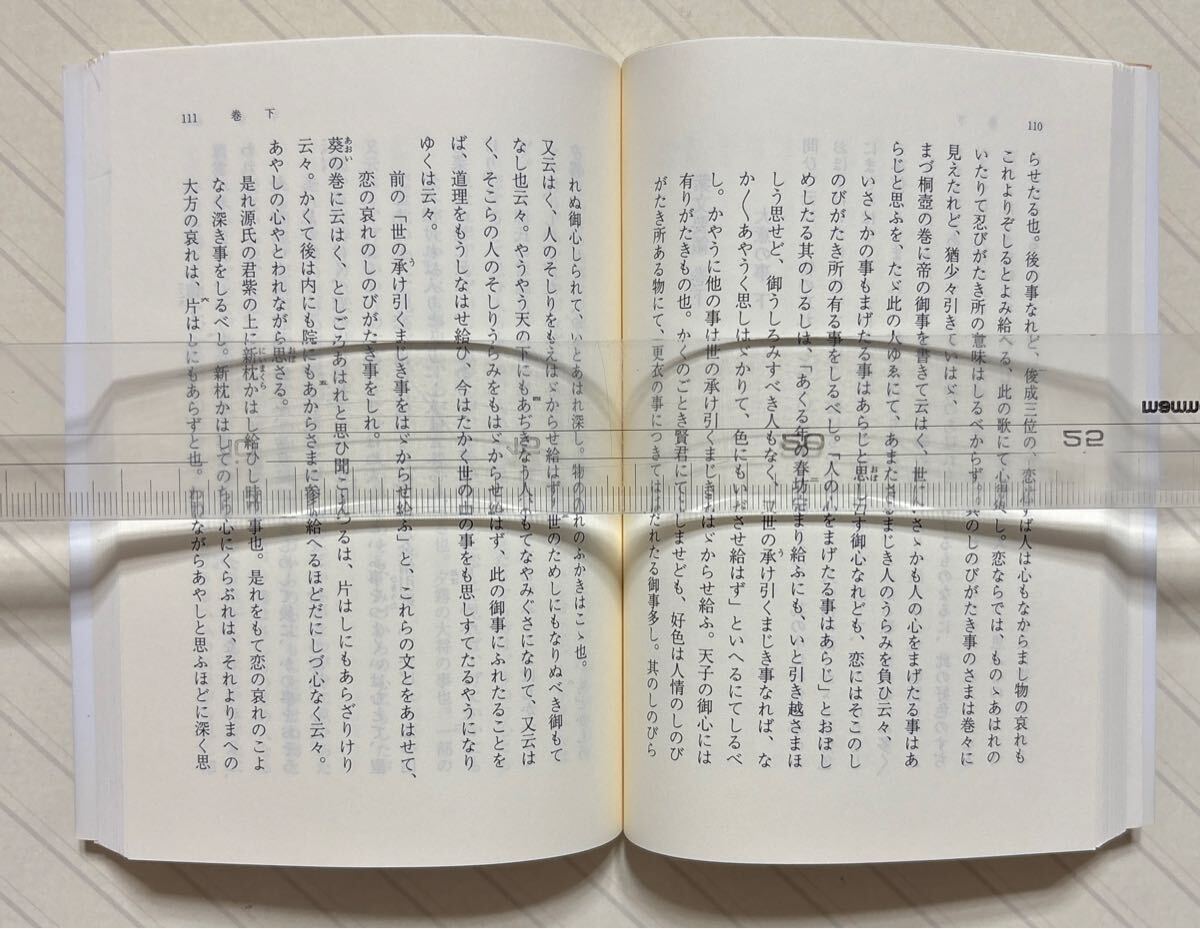 110
らせたる也。後の事なれど、俊成三位の、恋せずば人は心もなからまし物の哀れも
これよりぞしるとよみ給へる、此の歌にて心得べし。恋ならでは、ものゝあはれの
いたりて忍びがたき所の意味はしるべからず。其のしのびがたき事のさまは巻々に
見えたれど、猶少々引きていはゞ、
まづ桐壺の巻に帝の御事を書きて云はく、世にいさゝかも人の心をまげたる事はあ
らじと思ふを、たゞ此の人ゆゑにて、あまたさるまじき人のうらみを負ひ云々、
いさゝかの事もまげたる事はあらじと思し召す御心なれども、恋にはそこのし
のびがたき所の有る事をしるべし。「人の心をまげたる事はあらじ」とおぼし
めしたる其のしるしは、「あくる年の春坊定まり給ふにも、いと引き越さまほ
しう思せど、御うしろみすべき人もなく、又世の承け引くまじき事なれば、な
か〳〵あやうく思しはゞかりて、色にもいださせ給はず」といへるにてしるべ
し。かやうに他の事は世の承け引くまじきをはゞからせ給ふ。天子の御心には
有りがたきもの也。かくのごとき賢君にてましませども、好色は人情のしのび
がたき所ある物にて、更衣の事につきてはみだれたる御事多し。其のしのびら
111
巻 下
れぬ御心しられて、いとあはれ深し。物の
れのふかきはこゝ也。
又云はく、人のそしりをもえはゞからせ給はず、世のためしにもなりぬべき御もて
なし也云々。やうやう天の下にもあぢきなう人のもてなやみぐさになりて、又云は
く、そこらの人のそしりうらみをもはゞからせ給はず、此の御事にふれたることを
ば、道理をもうしなはせ給ひ、今はたかく世の中の事をも思しすてたるやうになり
ゆくは云々。
前の「世の承け引くまじき事をはゞからせ給ふ」と、これらの文とをあはせて、
恋の哀れのしのびがたき事をしれ。
葵の巻に云はく、としごろあはれと思ひ聞こえつるは、片はしにもあらざりけり
云々。かくて後は内にも院にもあからさまに参り給へるほどだにしづ心なく云々。
あやしの心やとわれながら思さる。
是れ源氏の君紫の上に新枕かはし給ひし時の事也。是れをもて恋の哀れのこよ
なく深き事をしるべし。新枕かはしてのちの心にくらぶれは、それよりまへの
大方の哀れは、片はしにもあらずと也。われながらあやしと思ふほどに深く思
52